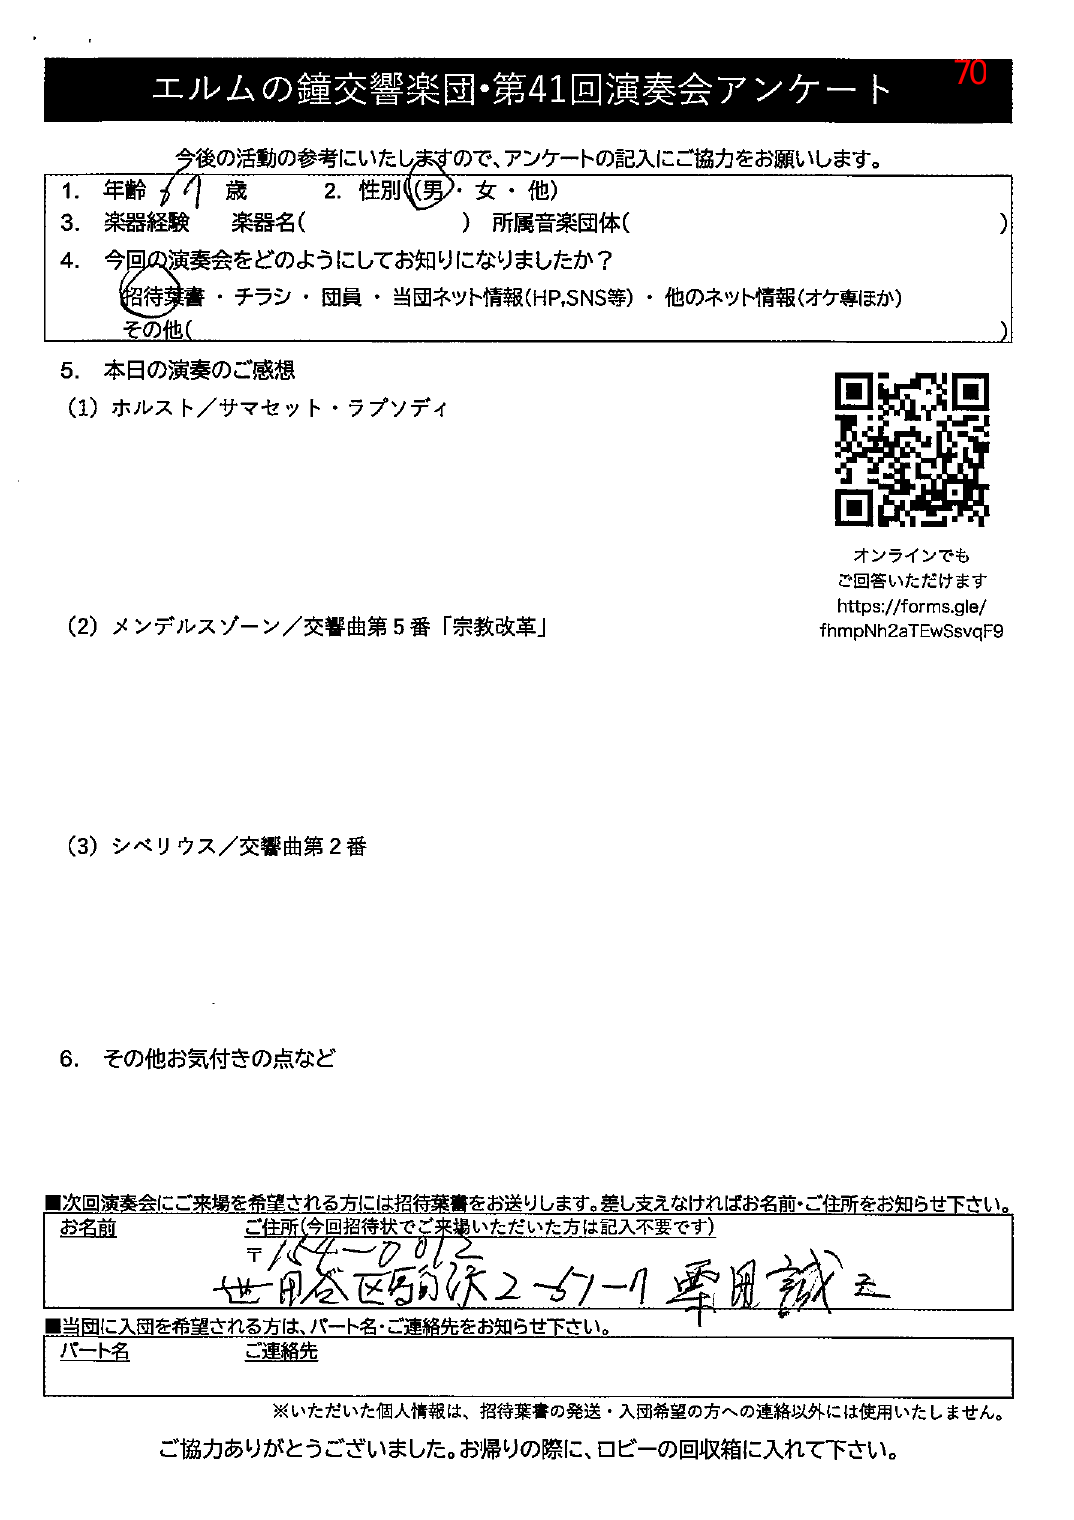 70
エルムの鐘交響楽団・第41回演奏会アンケート
今後の活動の参考にいたしますので、アンケートの記入にご協力をお願いします。
1. 年齢 67 歳 2. 性別(男・女・他)
3. 楽器経験 楽器名( ) 所属音楽団体( )
4. 今回の演奏会をどのようにしてお知りになりましたか？
招待葉書・チラシ・団員・当団ネット情報(HP,SNS等)・他のネット情報(オケ専ほか)
その他( )
5. 本日の演奏のご感想
(1) ホルスト／サマセット・ラプソディ
オンラインでも
ご回答いただけます
https://forms.gle/
fhmpNh2aTEwSsvqF9
(2) メンデルスゾーン／交響曲第５番「宗教改革」
(3) シベリウス／交響曲第２番
6. その他お気付きの点など
■次回演奏会にご来場を希望される方には招待葉書をお送りします。差し支えなければお名前・ご住所をお知らせ下さい。
お名前 ご住所(今回招待状でご来場いただいた方は記入不要です)
〒154-0012
世田谷区駒沢2-57-7 栗田誠
■当団に入団を希望される方は、パート名・ご連絡先をお知らせ下さい。
パート名 ご連絡先
※いただいた個人情報は、招待葉書の発送・入団希望の方への連絡以外には使用いたしません。
ご協力ありがとうございました。お帰りの際に、ロビーの回収箱に入れて下さい。